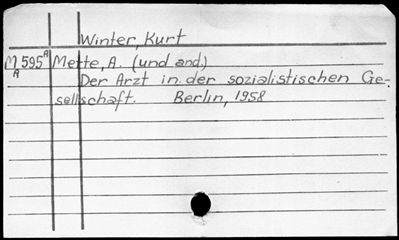 Winter, Kurt
M 595 A Mette, A. (und and.)
A
Der Arzt in der sozialistischen Ge-
sellschaft. Berlin, 1958